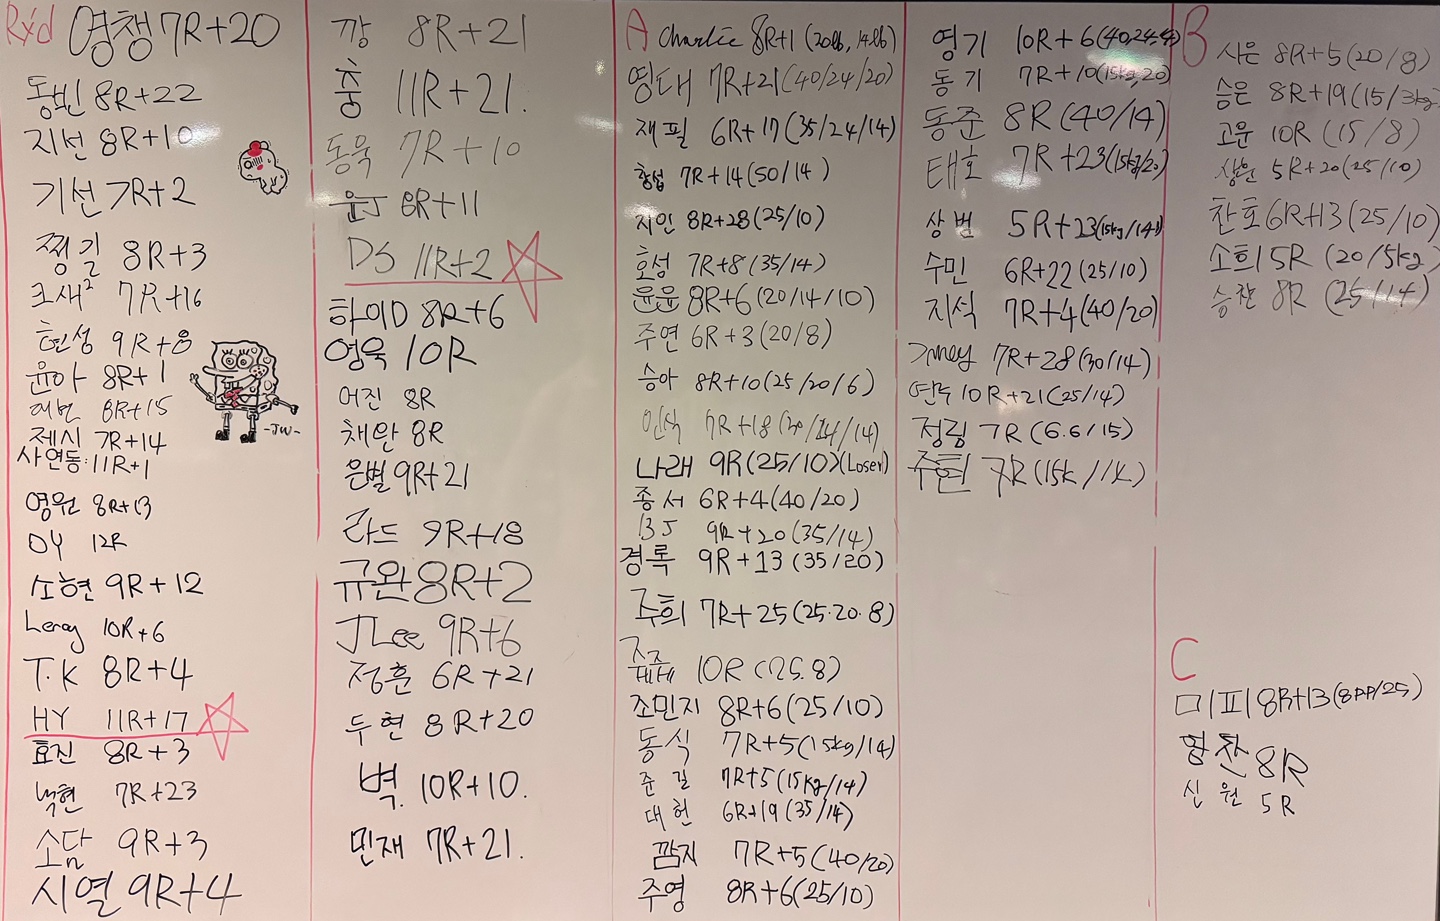 Rx'd
영챙 7R+20
동빈 8R+22
지선 8R+10
기선 7R+2
찡길 8R+3
크새² 7R+16
현성 9R+8
윤아 8R+1
8R+15
제시 7R+14
사연동: 11R+1
영원 8R+13
DY 12R
소현 9R+12
Leroy 10R+6
T.K 8R+4
HY 11R+17
효진 8R+3
7R+23
소담 9R+3
시열 9R+4
-JW-
깡 8R+21
충 11R+21.
동욱 7R+10
윤J 8R+11
DS 11R+2
하이D 8R+6
영욱 10R
어진 8R
채안 8R
은별 9R+21
라드 9R+18
규완 8R+2
JLee 9R+6
정훈 6R+21
두현 8R+20
벽. 10R+10.
민재 7R+21.
A
Charlie 8R+1 (20lb, 14lb)
영대 7R+21 (40/24/20)
재필 6R+17 (35/24/14)
황섭 7R+14 (50/14)
지인 8R+28 (25/10)
호성 7R+8 (35/14)
윤윤 8R+6 (20/14/10)
주연 6R+3 (20/8)
승아 8R+10 (25/20/6)
인식 7R+18
나래 9R (25/10) (Loser)
종서 6R+4 (40/20)
BJ 9R+20 (35/14)
경록 9R+13 (35/20)
주희 7R+25 (25.20.8)
10R (25.8)
조민지 8R+6 (25/10)
동식 7R+5 (15kg/14)
준길 7R+5 (15kg/14)
대헌 6R+19 (35/14)
깜지 7R+5 (40/20)
주영 8R+6 (25/10)
영기 10R+6 (40,24,4)
동기 7R+10 (15kg,20)
동준 8R (40/14)
태호 7R+23 (15kg/20)
상범 5R+23 (15kg/14lb)
수민 6R+22 (25/10)
지식 7R+4 (40/20)
7R+28 (30/14)
연두 10R+21 (25/14)
정링 7R (6.6/15)
주현 7R (15k/1k)
B
시은 8R+5 (20/8)
슴은 8R+19 (15/3kg)
고운 10R (15/8)
상원 5R+20 (25/10)
찬호 6R+13 (25/10)
소희 5R (20/5kg)
승찬 8R (25/14)
C
미피 8R+13 (8pp/25)
항찬 8R
신원 5R